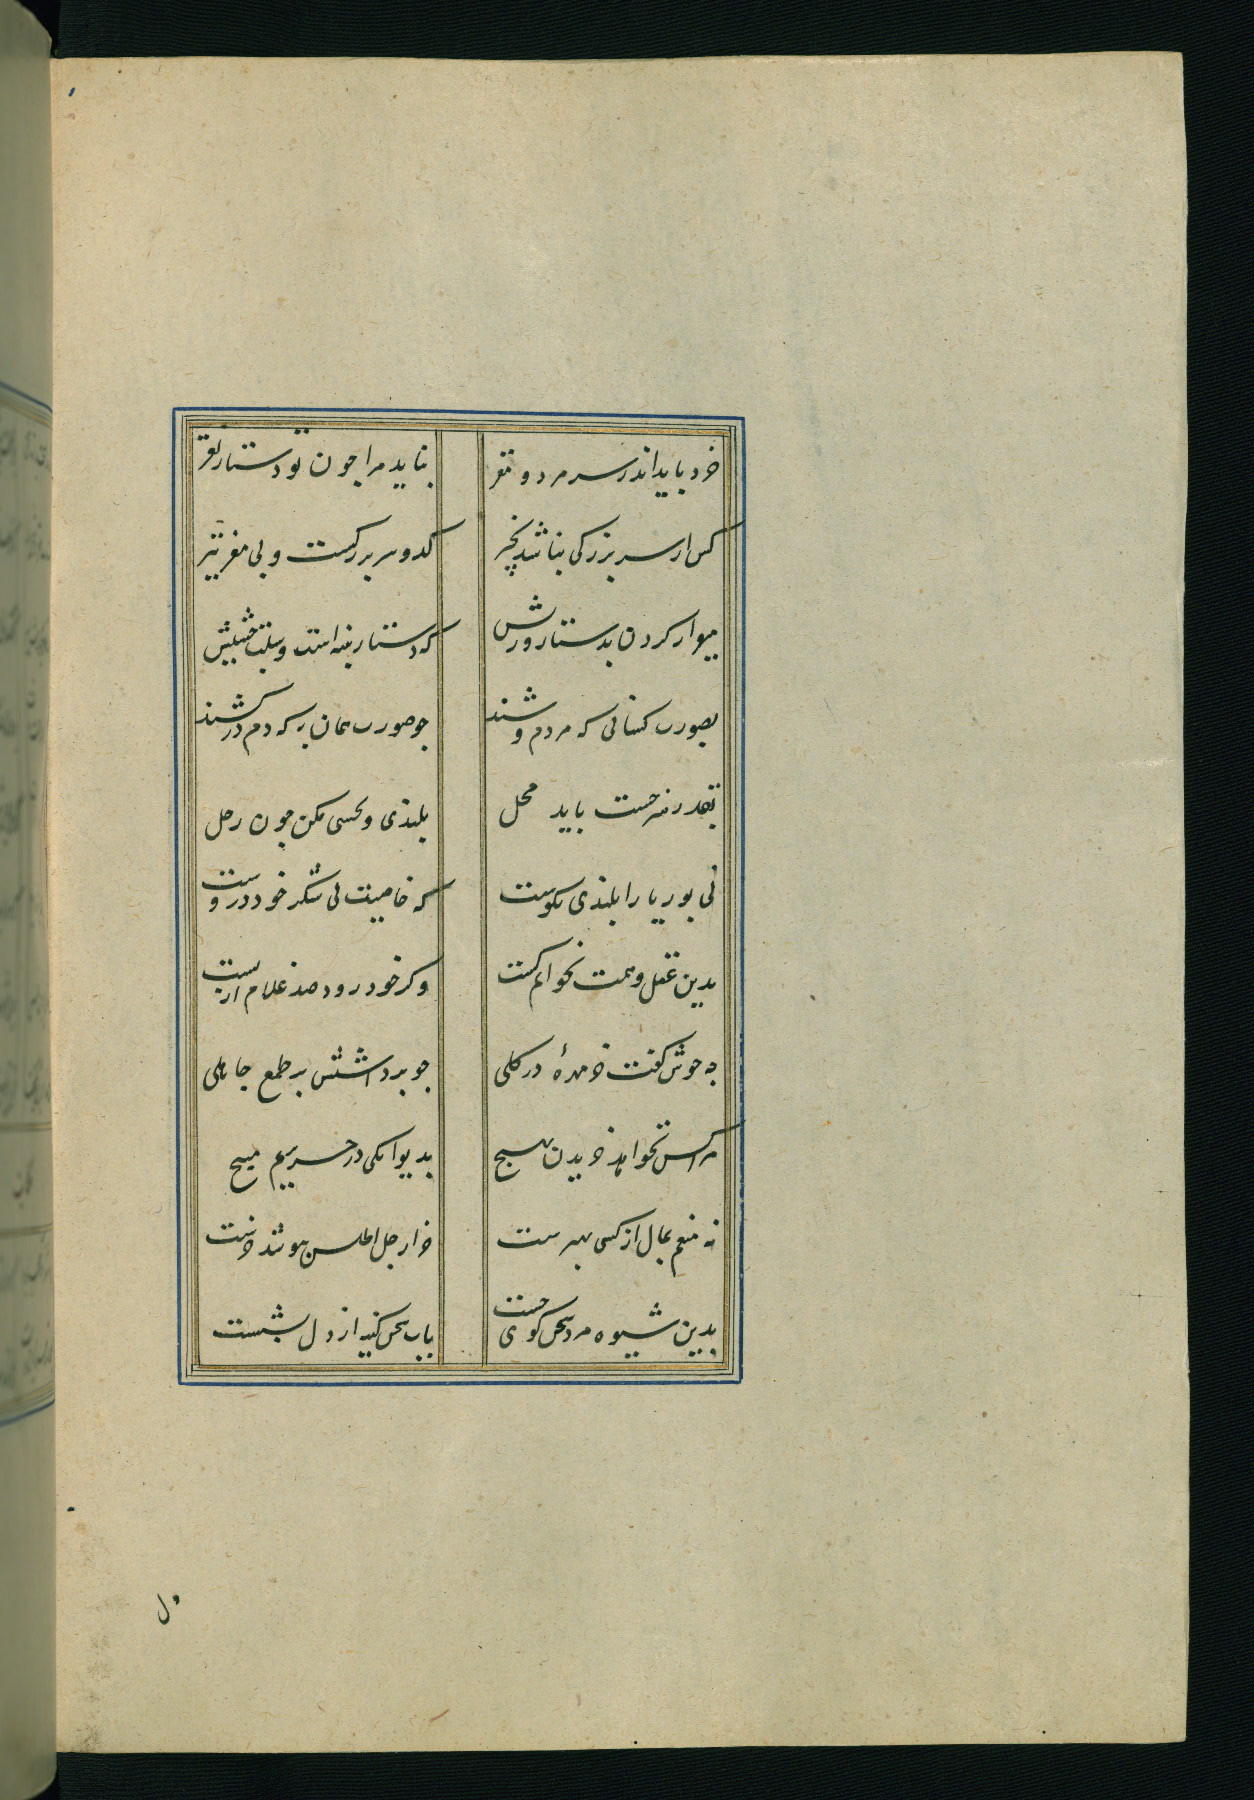 خرد باید اندر سر مرد و مغز نباید مرا چون تو دستار نغز
کس از سر بزرگی نباشد بچیز کدو سر بزرگست و بی مغز نیز
میفراز کردن بدستار و ریش که دستار پنبه است و سبلت حشیش
بصورت کسانی که مردم وشند چو صورت همان به که دم درکشند
بقدر هنر جست باید محل بلندی و نحسی مکن چون زحل
نی بوریا را بلندی نکوست که خاصیت نی شکر خود دروست
بدین عقل و همت نخوانم کست وکر خود رود صد غلام از پست
چه خوش کفت خر مهرهٔ در کلی چو برداشتش پر طمع جاهلی
مرا کس نخواهد خریدن بهیچ بدیوانکی در حریرم مپیچ
نه منعم بمال از کسی بهترست خر ار جل اطلس بپوشد خرست
بدین شیوه مرد سخن کوی جست بآب سخن کینه از دل بشست
دل